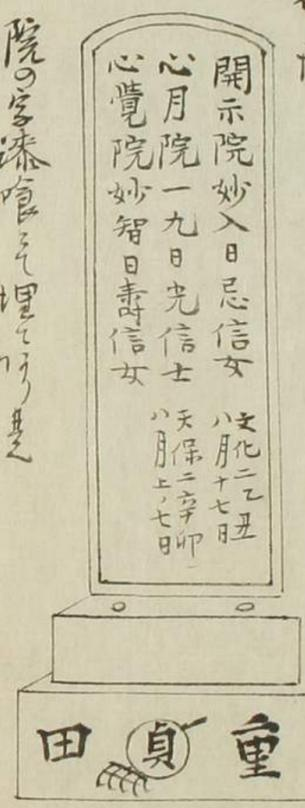 開示院妙入日忌信女 文化二乙丑 八月十七日
心月院一九日光信士 天保二辛卯 八月上ノ七日
心覺院妙智日壽信女
重 貞 田
院の字漆喰にて埋てあり